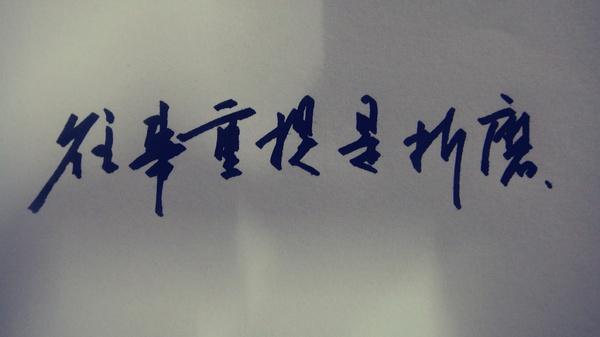 往事重提是折磨、